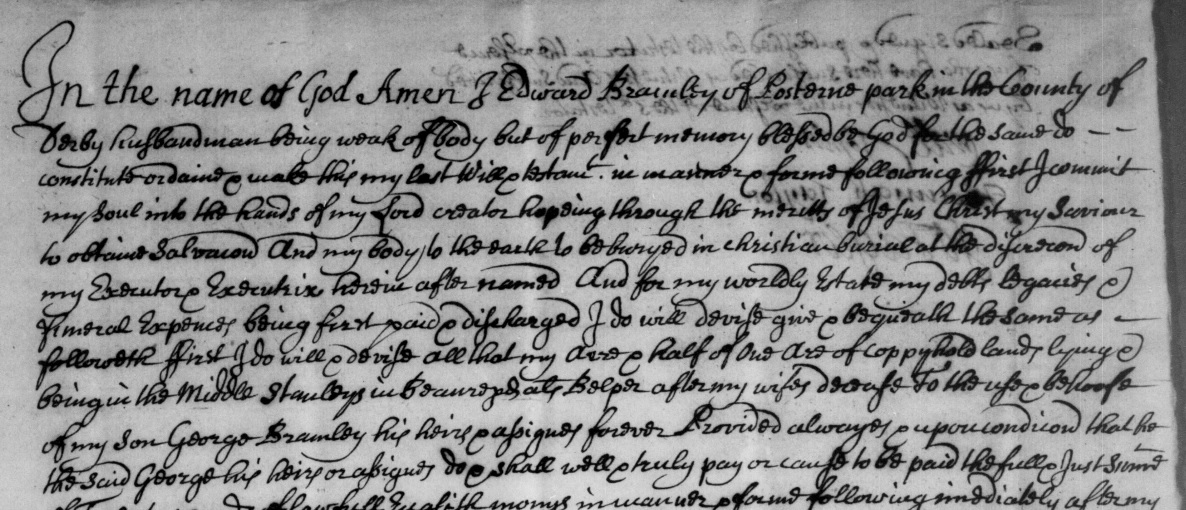 In the name of God Amen I Edward Bramley of Posterne park in the County of
Derby husbandman being weak of body but of perfect memory blessed be God for the same do
constitute ordaine & make this my last Will & testamt. in manner & forme following ffirst I commit
my Soul into the hands of my Lord creator hopeing through the meritts of Jesus Christ my Saviour
to obtaine Salvacon And my body to the earth to be buryed in christian burial at the discrecon of
my Executor & Executrix herein after named And for my worldly Estate my debts legacies &
funeral Expences being first paid & discharged I do will devise give & bequeath the same as
followeth ffirst I do will & devise all that my Acre & half of One Acre of Coppyhold lands lying &
being in the Middle Stanleys in Beaureper als Belper after my wifes decease To the use & behoofe
of my Son George Bramley his heirs & assignes forever Provided alwayes & upon condicon that he
the said George his heirs or assignes do & shall well & truly pay or cause to be paid the full & Just Summe
of lawfull English money in manner & forme following imediately after my